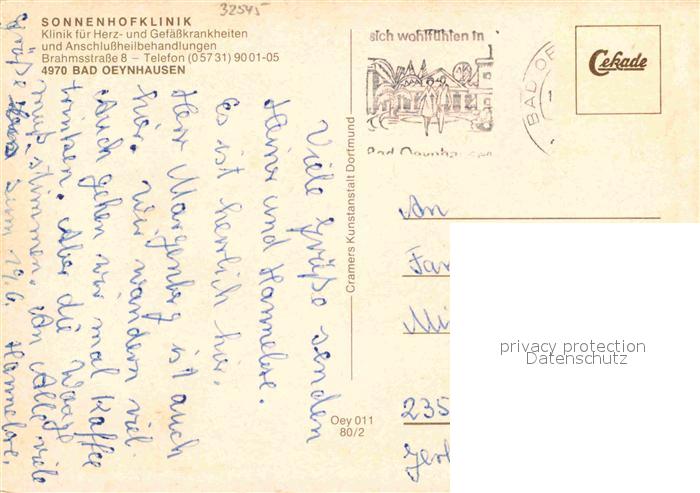 32545
SONNENHOFKLINIK
Klinik für Herz- und Gefäßkrankheiten
und Anschlußheilbehandlungen
Brahmsstraße 8 – Telefon (0 57 31) 90 01-05
4970 BAD OEYNHAUSEN
sich wohlfühlen in
Bad Oeynhausen
BAD OE
Cekade
Viele Grüße senden
Heiner und Hannelore.
Es ist herrlich hier.
Herr Margenberg ist auch
hier. Wir wandern viel.
Auch gehen wir mal Kaffee
trinken. Aber die Waage
muß stimmen. An Alle viele
Grüße zum 17.6. Hannelore.
Cramers Kunstanstalt Dortmund
Oey 011
80/2
An
Fam
Mi
235
privacy protection
Datenschutz